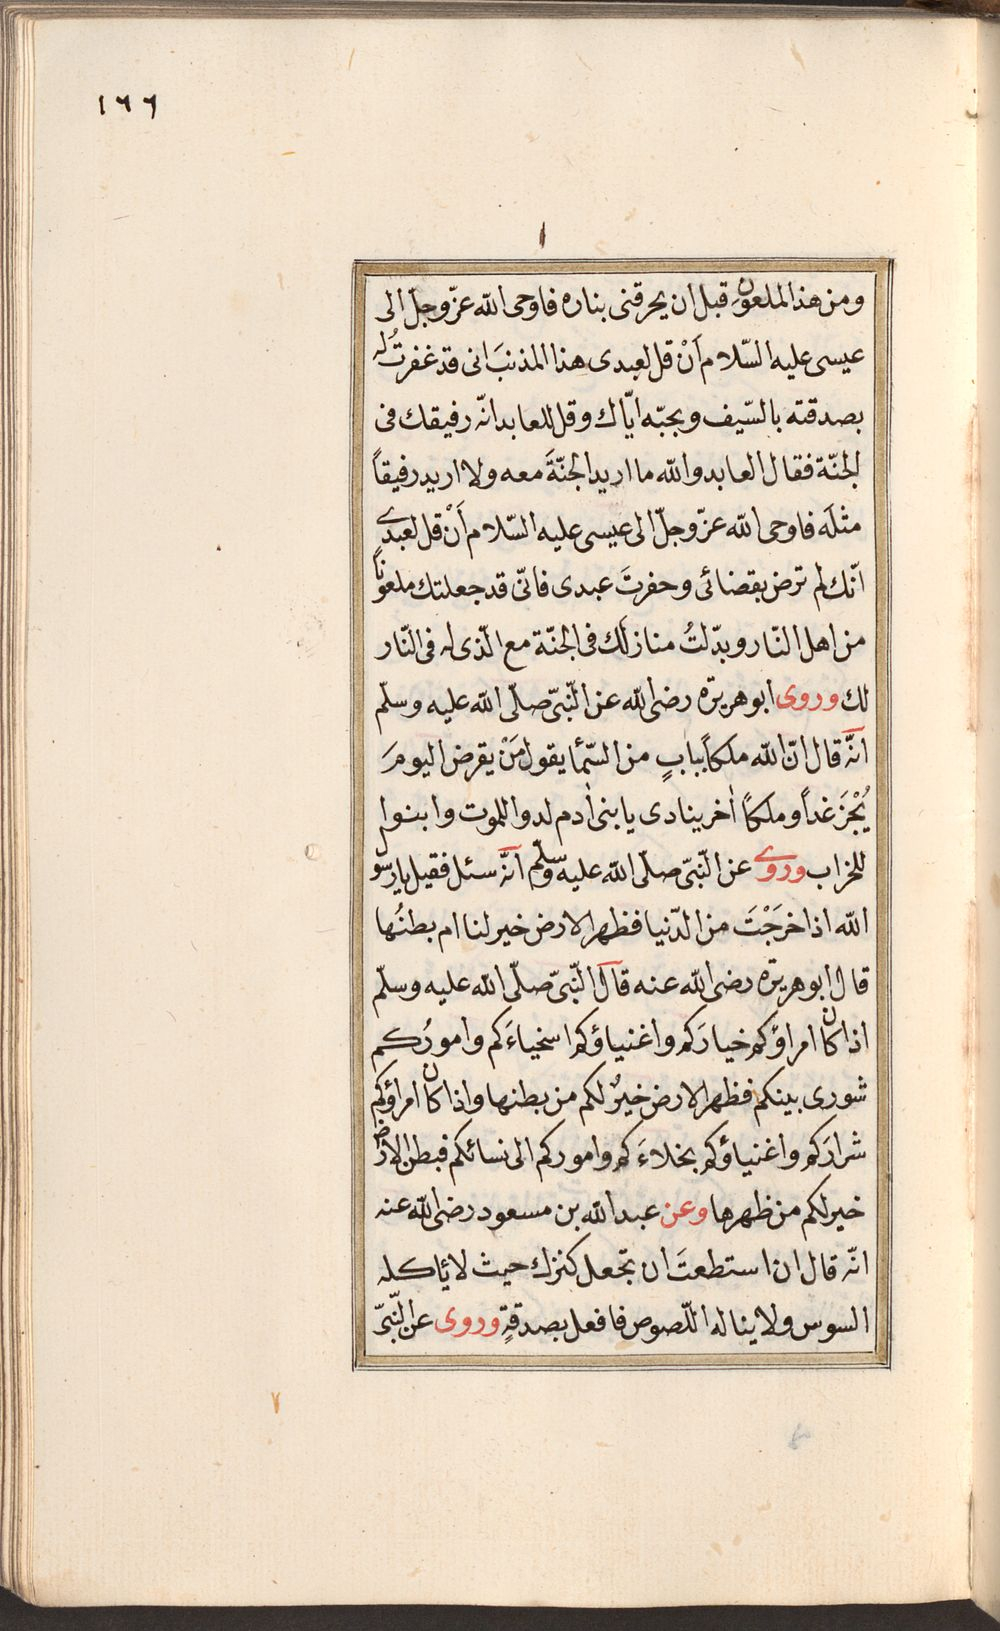 ١٦٦
١
ومن هذا الملعون قبل ان يحرقنى بناره فاوحى الله عزّ وجلّ الى
عيسى عليه السّلام اَنْ قل لعبدى هذا المذنبَ انى قد غفرتُ له
بصدقته بالسّيف وبحبّه ايّاك وقل للعابد انّه رفيقك فى
الجنّة فقال العابد والله ما اريد الجنّةَ معه ولا اريد رفيقاً
مثلَه فاوحى الله عزّ وجلّ الى عيسى عليه السّلام اَنْ قل لعبدى
انّك لم ترض بقضائى وحفرتَ عبدى فانّى قد جعلتك ملعوناً
من اهل النّار وبدّلتُ منازلَك فى الجنّة مع الّذى له فى النّار
لك وروى ابو هريرة رضى الله عن النّبىّ صلّى الله عليه وسلّم
انّه قال انّ لله ملكاً بِبابٍ من السّمآ يقول مَنْ يقرض اليومَ
يُجْزَ غداً وملكاً اٰخر ينادى يا بنى اٰدم لدوا للموت وابنوا
للخراب وروى عن النّبىّ صلّى الله عليه وسلّم انّه سئل فقيل يا رسول
الله اذا خرَجْتَ من الدّنيا فظهر الارض خير لنا ام بطنُها
قال ابو هريرة رضى الله عنه قال النّبىّ صلّى الله عليه وسلّم
اذا كان امراؤكم خيارَكم واغنياؤكم اسخياءَكم وامورُكم
شورى بينكم فظهر الارض خيرٌ لكم من بطنها واذا كان امراؤكم
شرارَكم واغنياؤكم بخلاءَكم واموركم الى نسائكم فبطن الارض
خير لكم من ظهرها وعن عبد الله بن مسعود رضى الله عنه
انّه قال ان استطعتَ ان تجعل كنزك حيث لا يأكله
السوس ولا يناله اللّصوص فافعل بصدقةٍ وروى عن النّبىّ